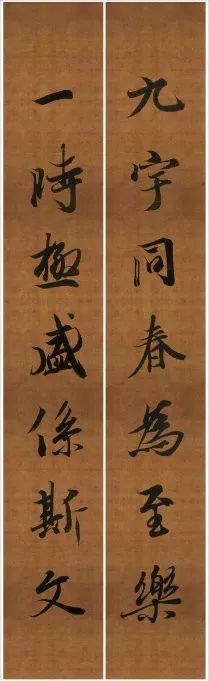 九宇同春為至樂
一時極盛係斯文